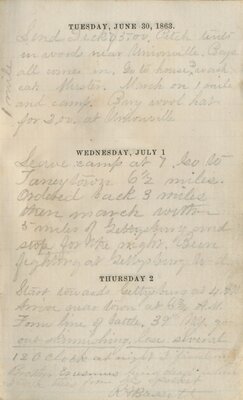 TUESDAY, JUNE 30, 1863.
Send Dick $5.00. Pitch tents
in woods near Unionville. Boys
all come in. Go to house, wash
eat. Muster. March on 1 mile
and camp. Buy wool hat
for 2.00 at Unionville
1 mile
WEDNESDAY, JULY 1
Leave camp at 7. Go to
Taneytown 6½ miles.
Ordered back 3 miles
then march within
5 miles of Gettysburg and
stop for the night. Been
fighting at Gettysburg to day
THURSDAY 2
Start towards Gettysburg at 4
Arrive near town at 6½ A.M.
Form line of battle. 39th N.Y. go
out skirmishing, lose several
12 O clock at night I find
Brother Erasmus lying dead
R. A. Bassett